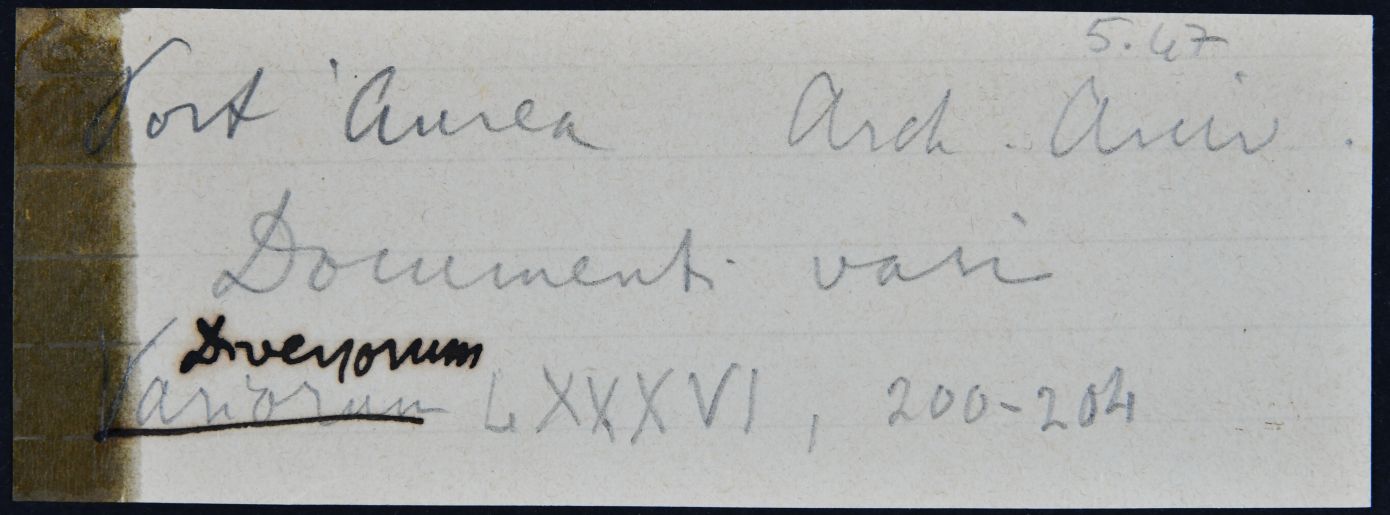 5.47
Port'Aurea Arch. Arciv.
Documenti vari
Diversorum
Variorum LXXXVI, 200-204